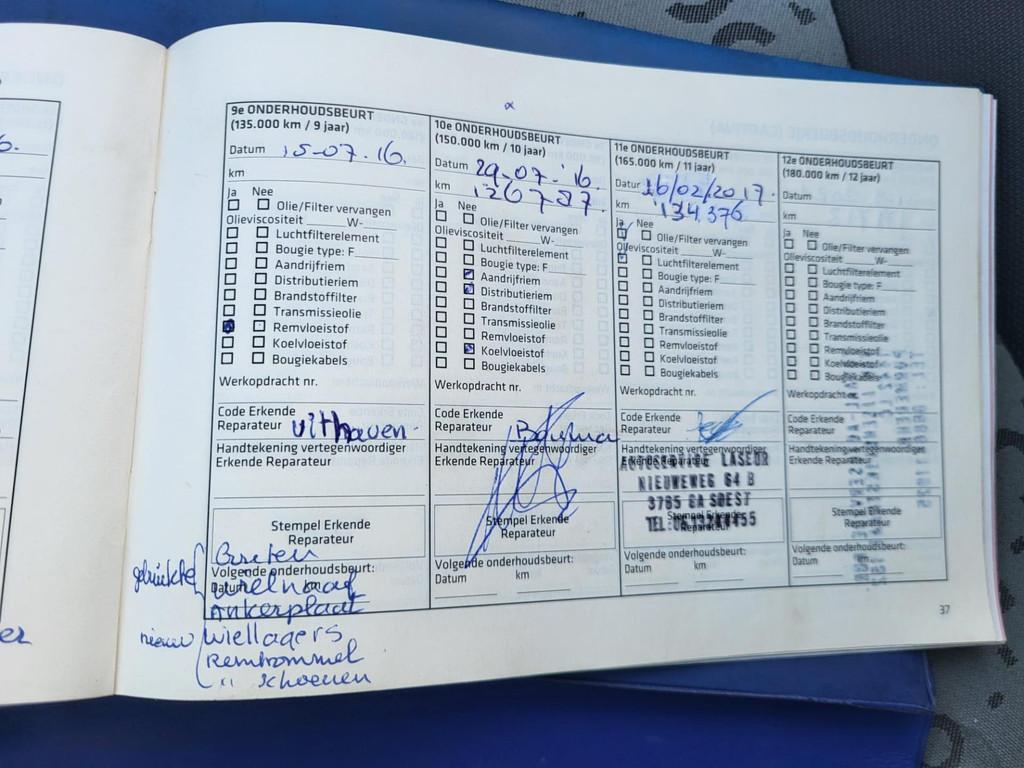 9e ONDERHOUDSBEURT
(135.000 km / 9 jaar)
Datum 15-07.16.
km
Ja Nee
Olie/Filter vervangen
Olieviscositeit W-
Luchtfilterelement
Bougie type: F
Aandrijfriem
Distributieriem
Brandstoffilter
Transmissieolie
Remvloeistof
Koelvloeistof
Bougiekabels
Werkopdracht nr.
Code Erkende
Reparateur Uithaven
Handtekening vertegenwoordiger
Erkende Reparateur
Stempel Erkende
Reparateur
Volgende onderhoudsbeurt:
Datum km
gebruikte
wielnaaf
Ankerplaat
nieuw wiellagers
Remtrommel
" schoenen
10e ONDERHOUDSBEURT
(150.000 km / 10 jaar)
Datum 29-07-'16.
km 126787.
Ja Nee
Olie/Filter vervangen
Olieviscositeit W-
Luchtfilterelement
Bougie type: F
Aandrijfriem
Distributieriem
Brandstoffilter
Transmissieolie
Remvloeistof
Koelvloeistof
Bougiekabels
Werkopdracht nr.
Code Erkende
Reparateur Bouma
Handtekening vertegenwoordiger
Erkende Reparateur
Stempel Erkende
Reparateur
Volgende onderhoudsbeurt:
Datum km
11e ONDERHOUDSBEURT
(165.000 km / 11 jaar)
Datum 16/02/2017.
km 134.376
Ja Nee
Olie/Filter vervangen
Olieviscositeit W-
Luchtfilterelement
Bougie type: F
Aandrijfriem
Distributieriem
Brandstoffilter
Transmissieolie
Remvloeistof
Koelvloeistof
Bougiekabels
Werkopdracht nr.
Code Erkende
Reparateur
Handtekening vertegenwoordiger
Erkende Reparateur
AUTOSERVICE LASEUR
NIEUWEWEG 64 B
3765 GA SOEST
Stempel Erkende
Reparateur
Volgende onderhoudsbeurt:
Datum km
12e ONDERHOUDSBEURT
(180.000 km / 12 jaar)
Datum
km
Ja Nee
Olie/Filter vervangen
Olieviscositeit W-
Luchtfilterelement
Bougie type: F
Aandrijfriem
Distributieriem
Brandstoffilter
Transmissieolie
Remvloeistof
Koelvloeistof
Bougiekabels
Werkopdracht nr.
Code Erkende
Reparateur
Handtekening vertegenwoordiger
Erkende Reparateur
Stempel Erkende
Reparateur
Volgende onderhoudsbeurt:
Datum km
37